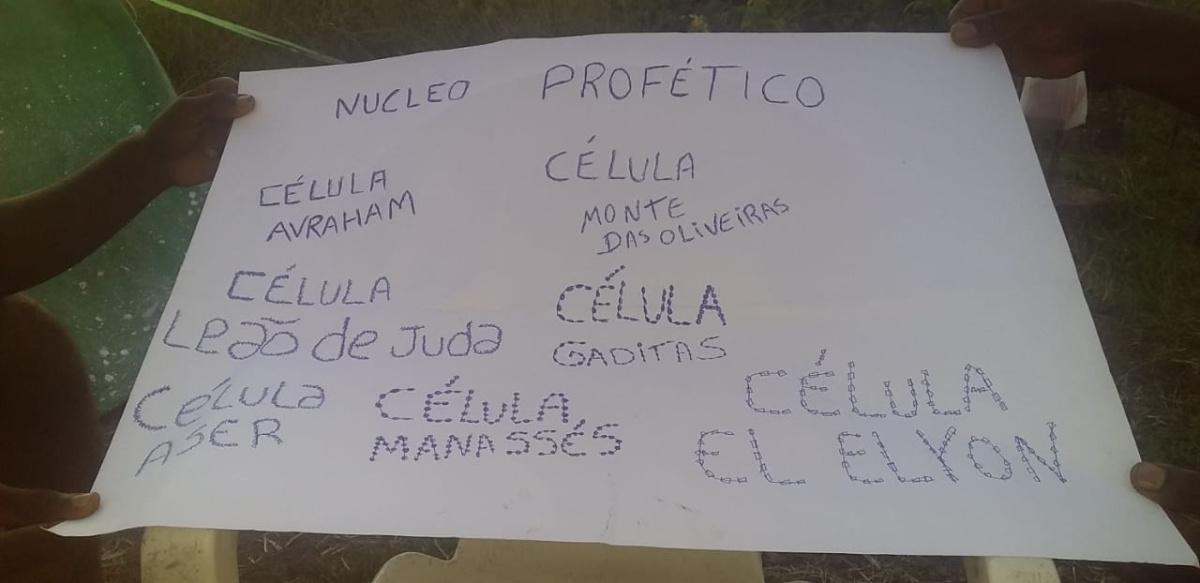 NUCLEO PROFÉTICO
CÉLULA
AVRAHAM
CÉLULA
MONTE
DAS OLIVEIRAS
CÉLULA
Leão de Juda
CÉLULA
GADITAS
CéLULa
ASER
CÉLULA
MANASSÉS
CÉLULA
EL ELYON